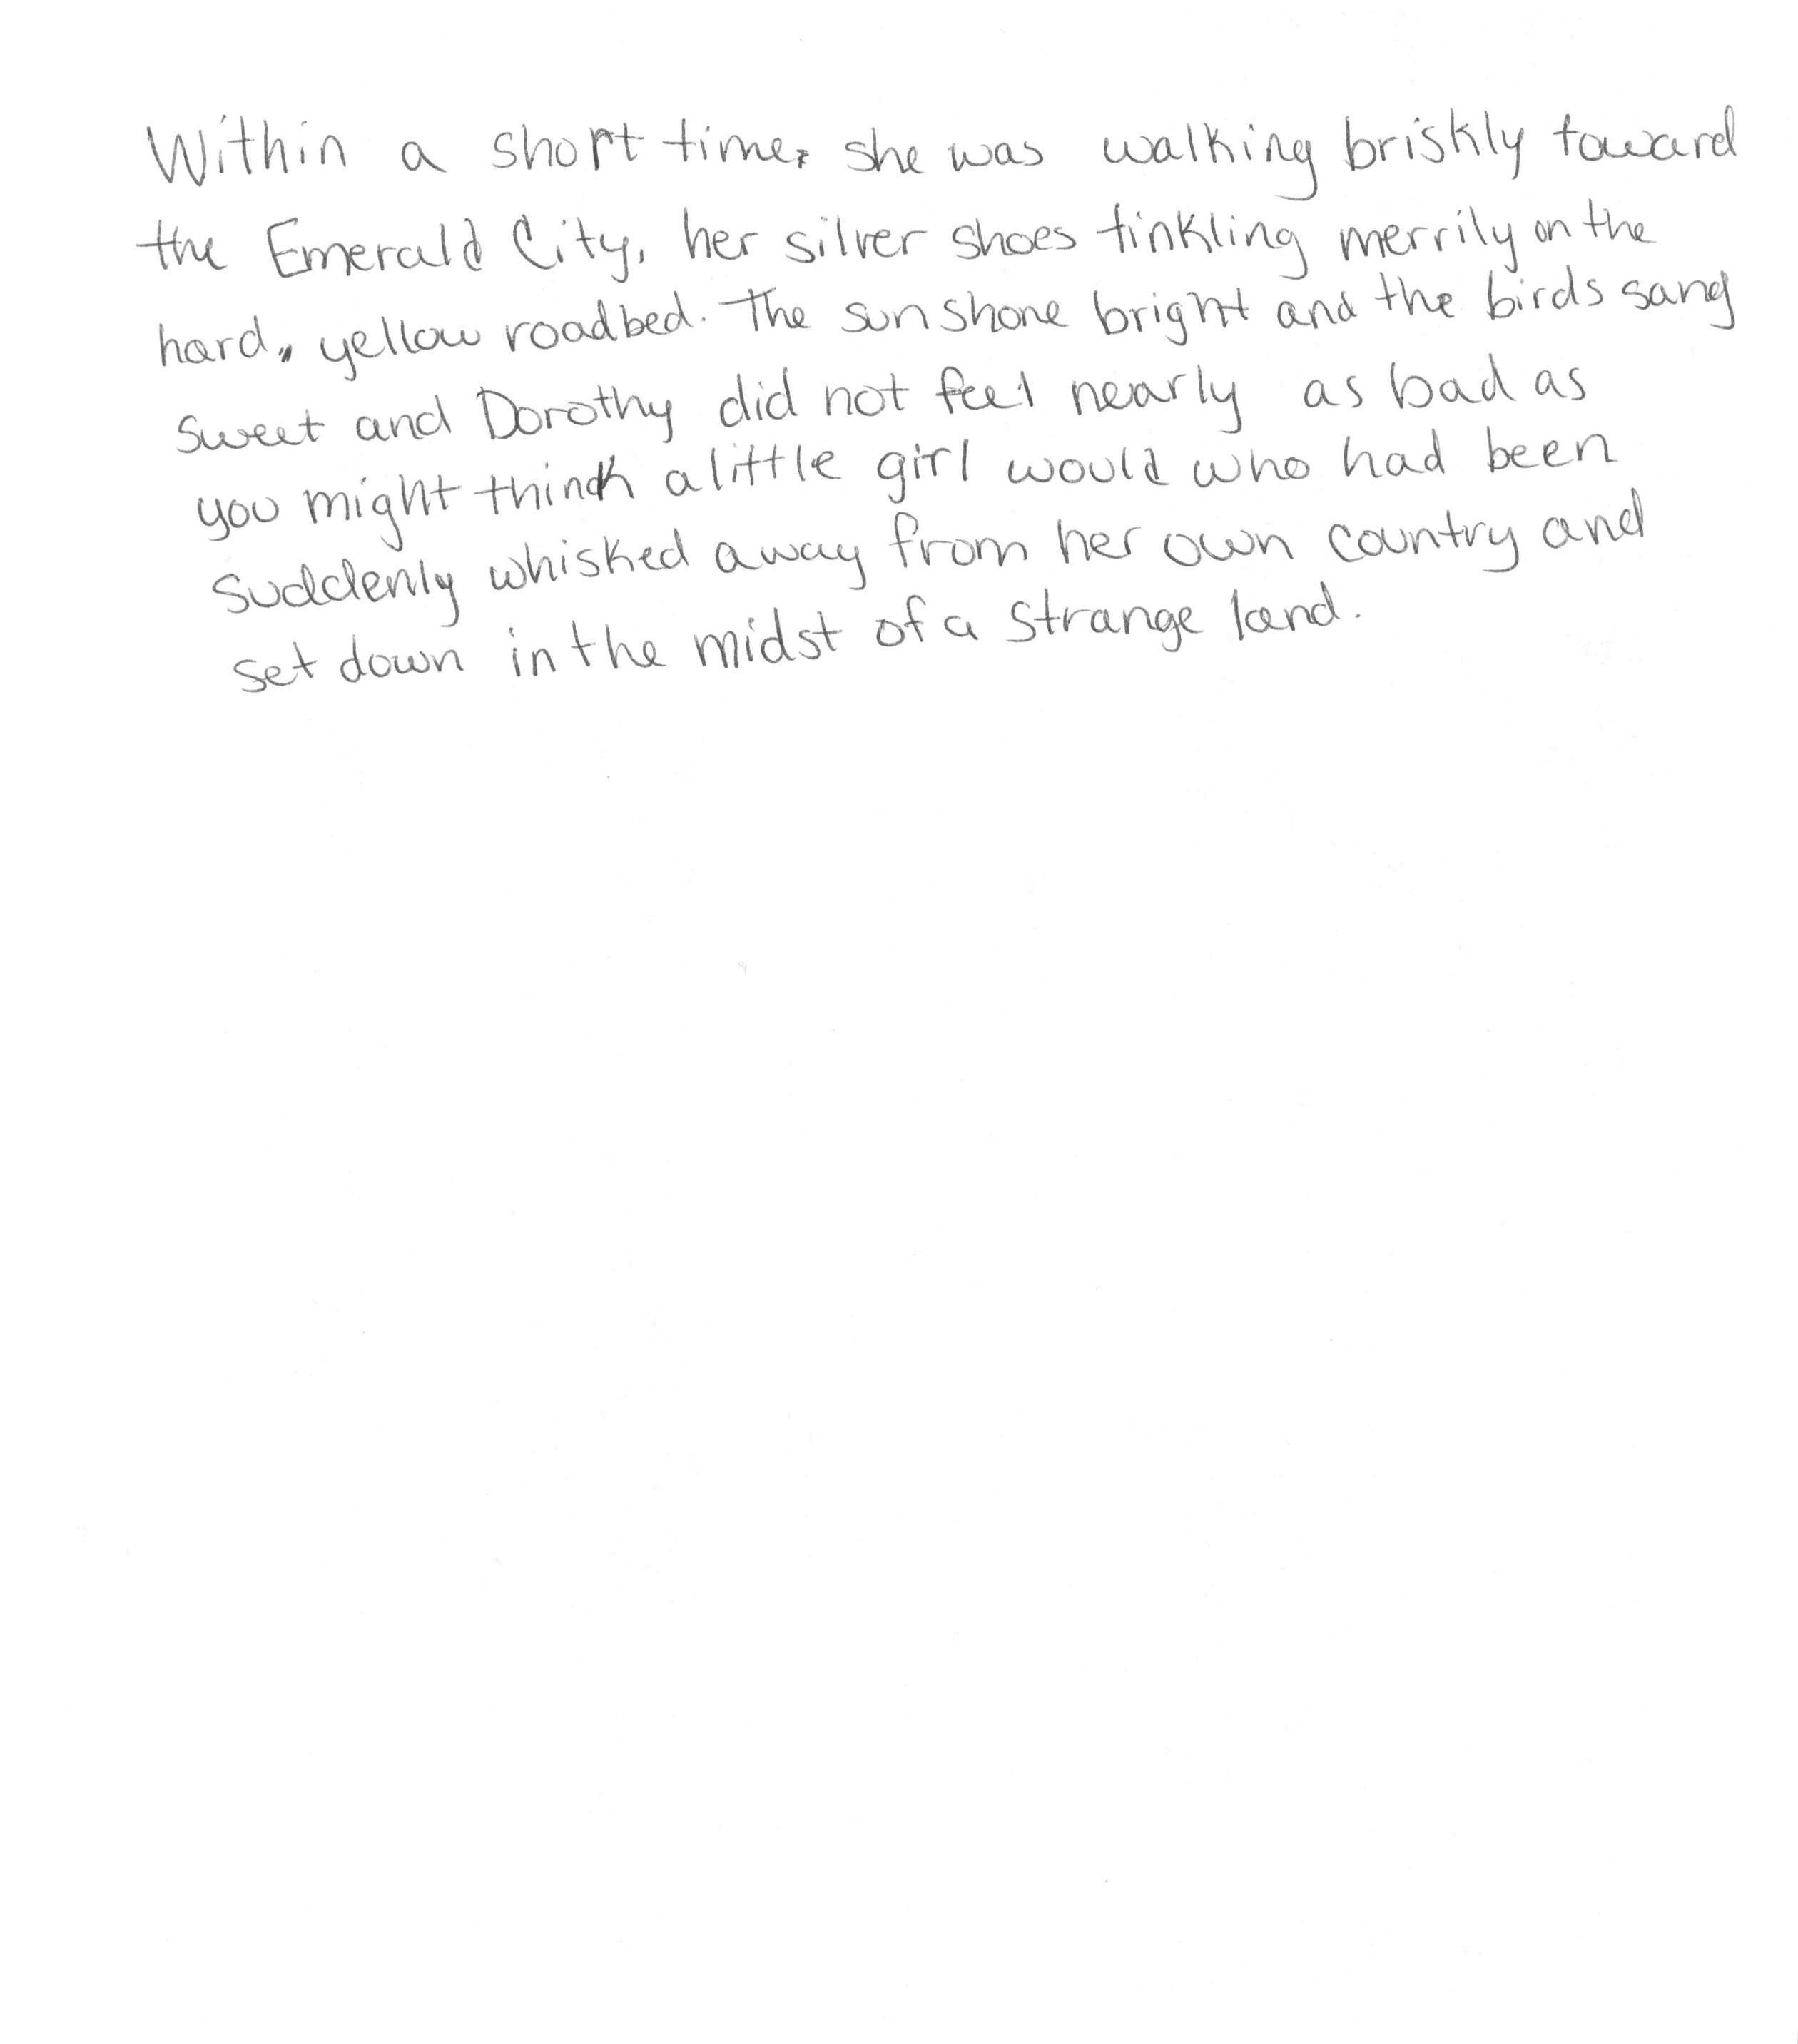 Within a short time, she was walking briskly toward
the Emerald City, her silver shoes tinkling merrily on the
hard, yellow roadbed. The sun shone bright and the birds sang
sweet and Dorothy did not feel nearly as bad as
you might think a little girl would who had been
suddenly whisked away from her own country and
set down in the midst of a strange land.